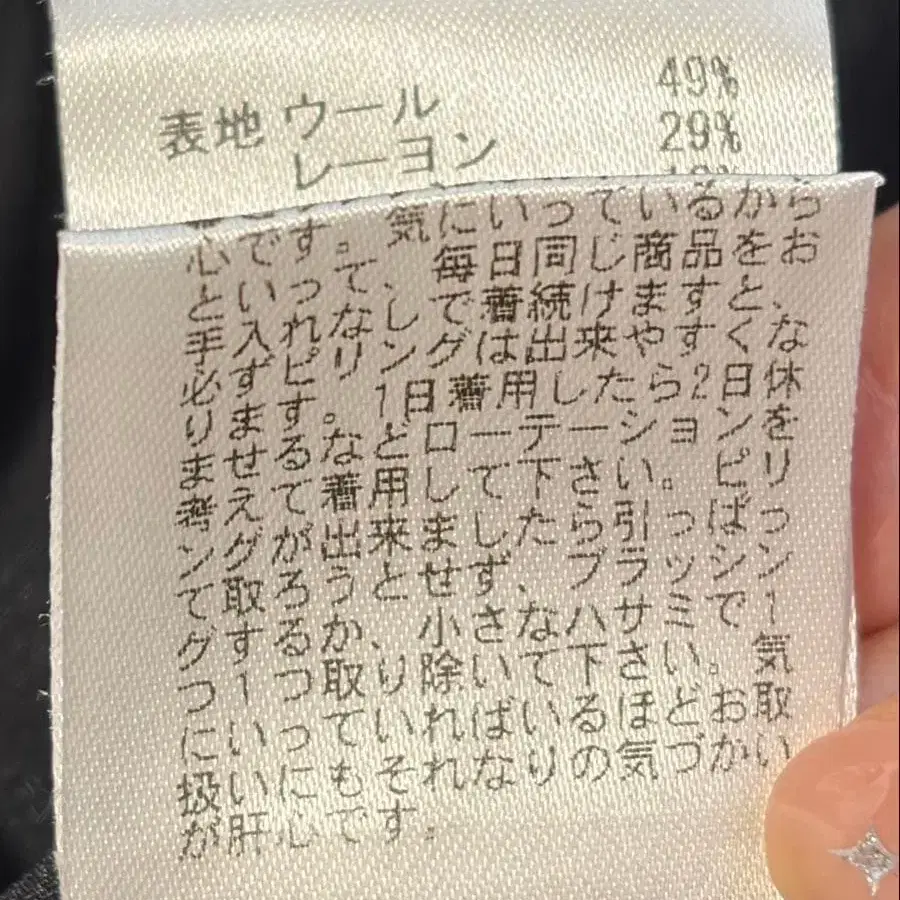 表地 ウール 49%
レーヨン 29%
心です。気にいっているから
といって、毎日同じ商品をお
手入れなしで着続けますと、
必ずピリングは出来やすくな
ります。1日着用したら2日休
ませるなどローテーションを
考えて着用して下さい。ピリ
ングが出来ましたら引っぱっ
て取ろうとせず、ブラッシン
グするか、小さなハサミで1
つ1つ取り除いて下さい。気
にいっていればいるほどお取
扱いにもそれなりの気づかい
が肝心です。